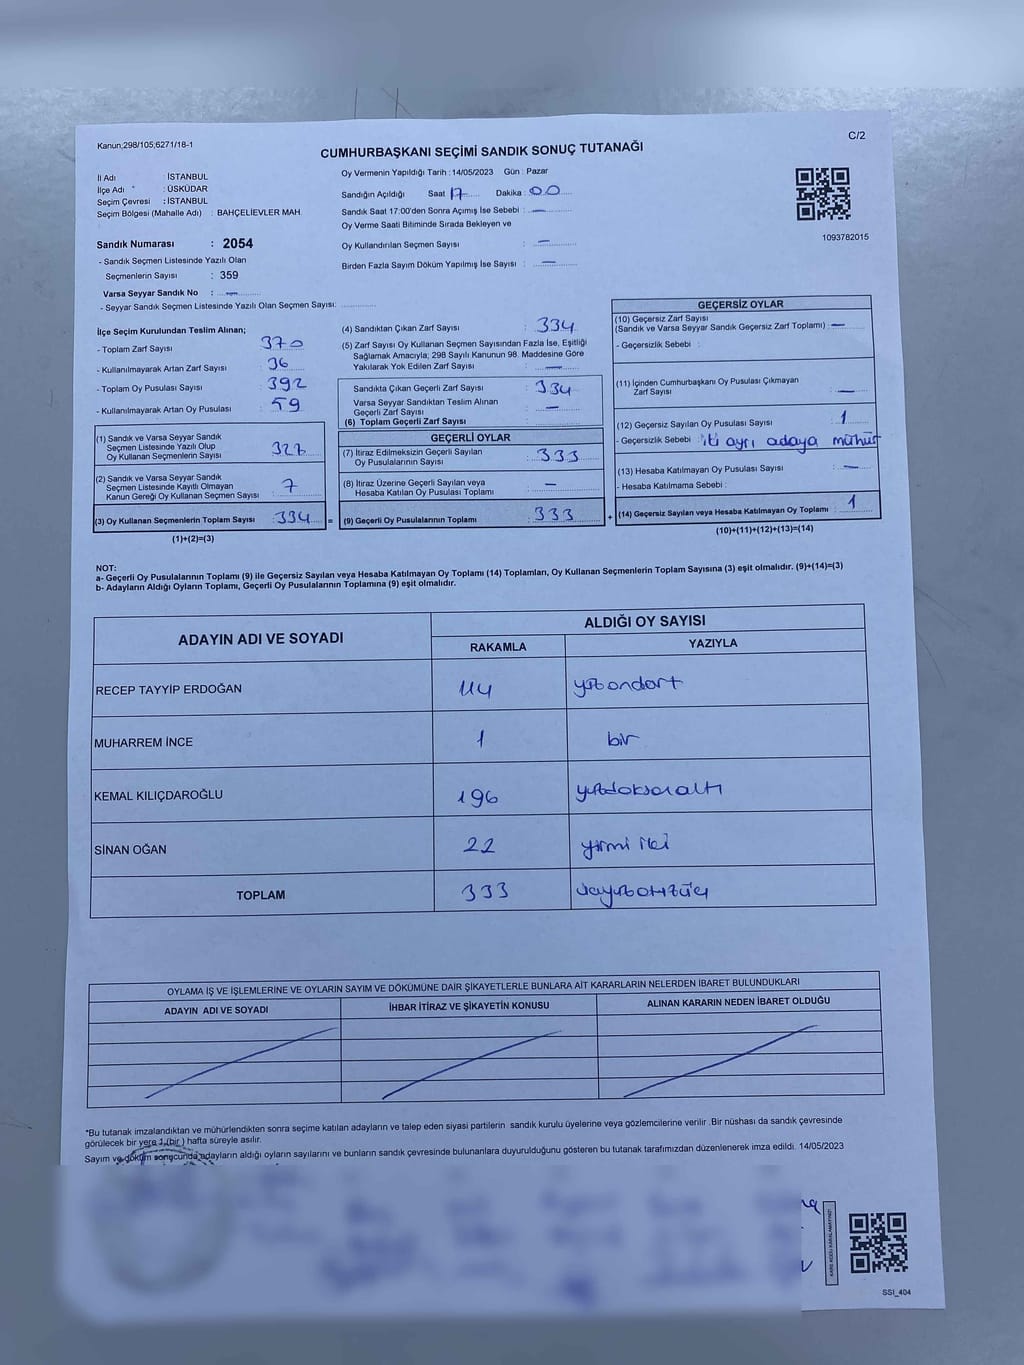 Kanun;298/105;6271/18-1
C/2
CUMHURBAŞKANI SEÇİMİ SANDIK SONUÇ TUTANAĞI
İl Adı : İSTANBUL
İlçe Adı : ÜSKÜDAR
Seçim Çevresi : İSTANBUL
Seçim Bölgesi (Mahalle Adı) : BAHÇELİEVLER MAH.
Sandık Numarası : 2054
- Sandık Seçmen Listesinde Yazılı Olan
Seçmenlerin Sayısı : 359
Varsa Seyyar Sandık No : —
- Seyyar Sandık Seçmen Listesinde Yazılı Olan Seçmen Sayısı:
Oy Vermenin Yapıldığı Tarih : 14/05/2023 Gün : Pazar
Sandığın Açıldığı Saat : 17 Dakika : 00
Sandık Saat 17:00'den Sonra Açımış İse Sebebi : —
Oy Verme Saati Bitiminde Sırada Bekleyen ve
Oy Kullandırılan Seçmen Sayısı : —
Birden Fazla Sayım Döküm Yapılmış İse Sayısı : —
1093782015
İlçe Seçim Kurulundan Teslim Alınan;
- Toplam Zarf Sayısı : 370
- Kullanılmayarak Artan Zarf Sayısı : 36
- Toplam Oy Pusulası Sayısı : 392
- Kullanılmayarak Artan Oy Pusulası : 59
(1) Sandık ve Varsa Seyyar Sandık
Seçmen Listesinde Yazılı Olup
Oy Kullanan Seçmenlerin Sayısı : 327
(2) Sandık ve Varsa Seyyar Sandık
Seçmen Listesinde Kayıtlı Olmayan
Kanun Gereği Oy Kullanan Seçmen Sayısı : 7
(3) Oy Kullanan Seçmenlerin Toplam Sayısı : 334 =
(1)+(2)=(3)
(4) Sandıktan Çıkan Zarf Sayısı : 334
(5) Zarf Sayısı Oy Kullanan Seçmen Sayısından Fazla İse, Eşitliği
Sağlamak Amacıyla; 298 Sayılı Kanunun 98. Maddesine Göre
Yakılarak Yok Edilen Zarf Sayısı : —
Sandıkta Çıkan Geçerli Zarf Sayısı : 334
Varsa Seyyar Sandıktan Teslim Alınan
Geçerli Zarf Sayısı : —
(6) Toplam Geçerli Zarf Sayısı :
GEÇERLİ OYLAR
(7) İtiraz Edilmeksizin Geçerli Sayılan
Oy Pusulalarının Sayısı : 333
(8) İtiraz Üzerine Geçerli Sayılan veya
Hesaba Katılan Oy Pusulası Toplamı : —
(9) Geçerli Oy Pusulalarının Toplamı : 333 +
GEÇERSİZ OYLAR
(10) Geçersiz Zarf Sayısı
(Sandık ve Varsa Seyyar Sandık Geçersiz Zarf Toplamı) : —
- Geçersizlik Sebebi :
(11) İçinden Cumhurbaşkanı Oy Pusulası Çıkmayan
Zarf Sayısı : —
(12) Geçersiz Sayılan Oy Pusulası Sayısı : 1
- Geçersizlik Sebebi : iki ayrı adaya mühür
(13) Hesaba Katılmayan Oy Pusulası Sayısı : —
- Hesaba Katılmama Sebebi :
(14) Geçersiz Sayılan veya Hesaba Katılmayan Oy Toplamı : 1
(10)+(11)+(12)+(13)=(14)
NOT:
a- Geçerli Oy Pusulalarının Toplamı (9) ile Geçersiz Sayılan veya Hesaba Katılmayan Oy Toplamı (14) Toplamları, Oy Kullanan Seçmenlerin Toplam Sayısına (3) eşit olmalıdır. (9)+(14)=(3)
b- Adayların Aldığı Oyların Toplamı, Geçerli Oy Pusulalarının Toplamına (9) eşit olmalıdır.
ADAYIN ADI VE SOYADI ALDIĞI OY SAYISI
RAKAMLA YAZIYLA
RECEP TAYYİP ERDOĞAN 114 yüzondört
MUHARREM İNCE 1 bir
KEMAL KILIÇDAROĞLU 196 yüzdoksanaltı
SİNAN OĞAN 22 yirmi iki
TOPLAM 333
OYLAMA İŞ VE İŞLEMLERİNE VE OYLARIN SAYIM VE DÖKÜMÜNE DAİR ŞİKAYETLERLE BUNLARA AİT KARARLARIN NELERDEN İBARET BULUNDUKLARI
ADAYIN ADI VE SOYADI İHBAR İTİRAZ VE ŞİKAYETİN KONUSU ALINAN KARARIN NEDEN İBARET OLDUĞU
*Bu tutanak imzalandıktan ve mühürlendikten sonra seçime katılan adayların ve talep eden siyasi partilerin sandık kurulu üyelerine veya gözlemcilerine verilir .Bir nüshası da sandık çevresinde
görülecek bir yere 1 (bir ) hafta süreyle asılır.
Sayım ve döküm sonucunda adayların aldığı oyların sayılarını ve bunların sandık çevresinde bulunanlara duyurulduğunu gösteren bu tutanak tarafımızdan düzenlenerek imza edildi. 14/05/2023
KARE KODU KARALAMAYINIZ!
SSI_404